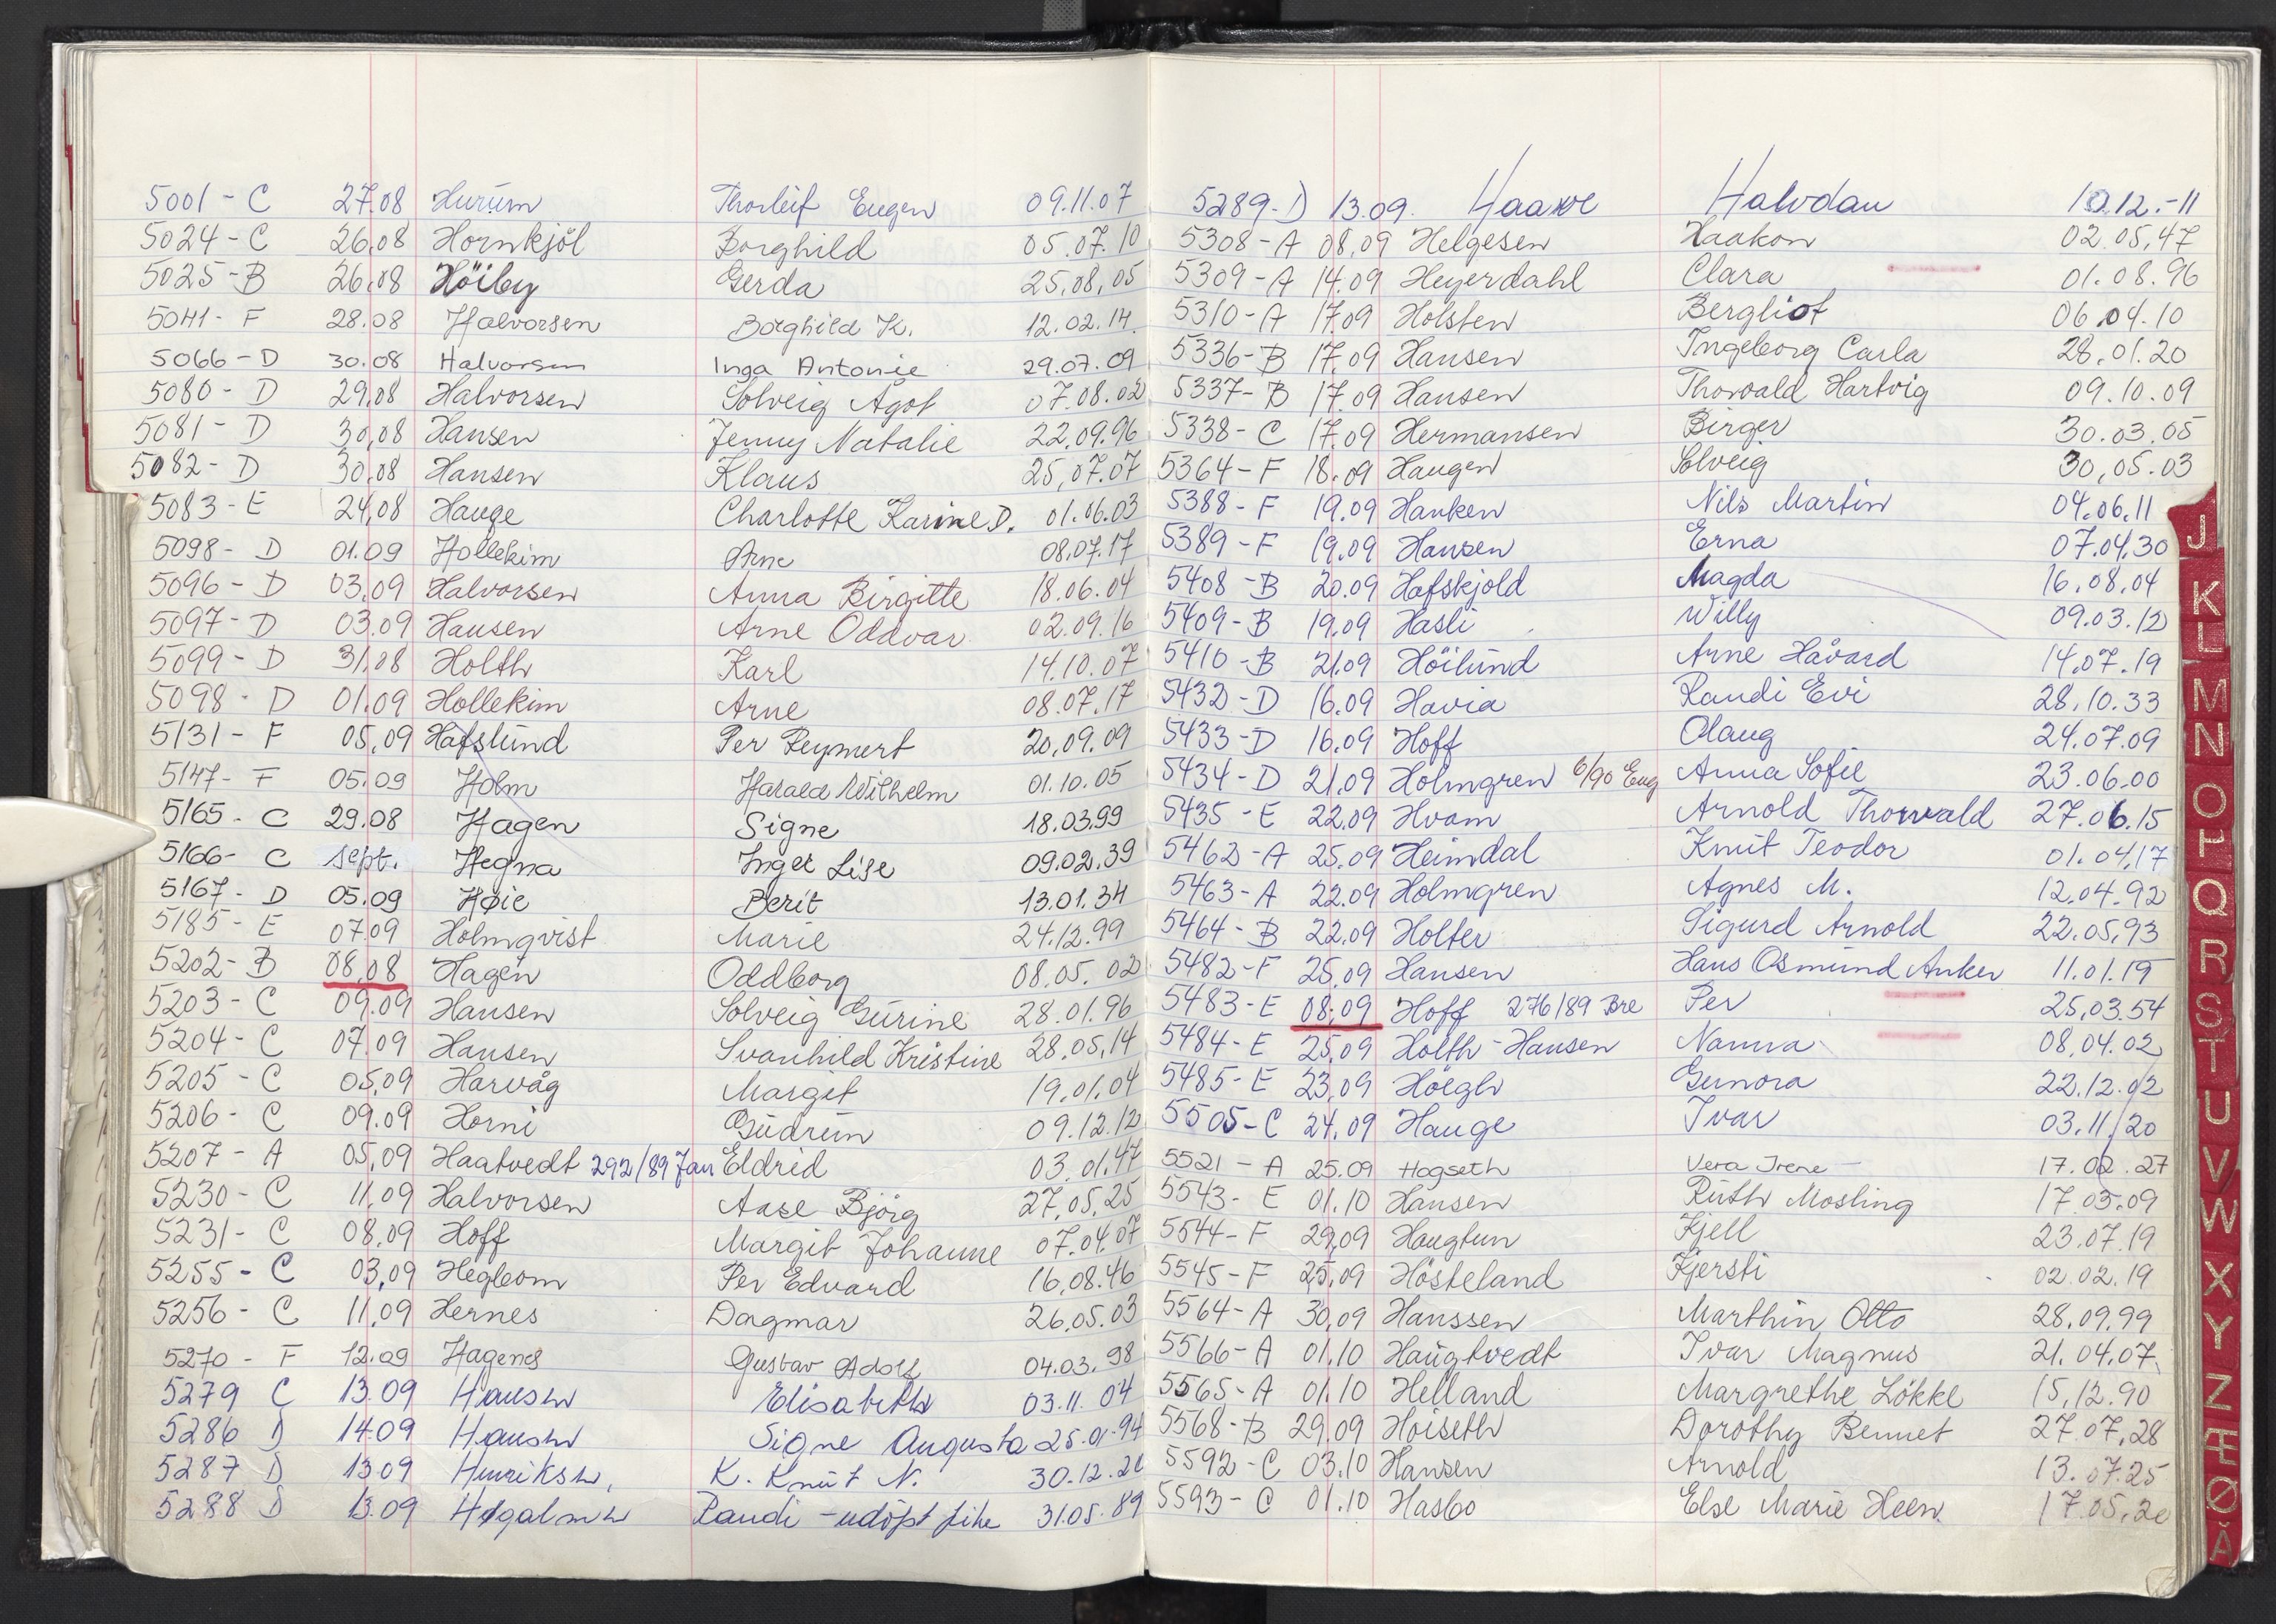 5001 - C 27.08 Hurum Thorleif Eugen 09.11.07
5024 - C 26.08 Hornkjöl Borghild 05.07.10
5025 - B 26.08 Höiby Gerda 25.08.05
5041 - F 28.08 Halvorsen Borghild K. 12.02.14
5066 - D 30.08 Halvorsen Inga Antonie 29.07.09
5080 - D 29.08 Halvorsen Solveig Agot 07.08.02
5081 - D 30.08 Hansen Jenny Natalie 22.09.96
5082 - D 30.08 Hansen Klaus 25.07.07
5083 - E 24.08 Hauge Charlotte Karine D. 01.06.03
5098 - D 01.09 Hollekim Arne 08.07.17
5096 - D 03.09 Halvorsen Anna Birgitte 18.06.04
5097 - D 03.09 Hansen Arne Oddvar 02.09.16
5099 - D 31.08 Holth Karl 14.10.07
5098 - D 01.09 Hollekim Arne 08.07.17
5131 - F 05.09 Hafslund Per Reymert 20.09.09
5147 - F 05.09 Holm Harald Wilhelm 01.10.05
5165 - C 29.08 Hagen Signe 18.03.99
5166 - C sept. Hegna Inger Lise 09.02.39
5167 - D 05.09 Høie Berit 13.01.34
5185 - E 07.09 Holmqvist Marie 24.12.99
5202 - B 08.08 Hagen Oddborg 08.05.02
5203 - C 09.09 Hansen Solveig Gurine 28.01.96
5204 - C 07.09 Hansen Svanhild Kristine 28.05.14
5205 - C 05.09 Harvåg Margit 19.01.04
5206 - C 09.09 Horni Gudrun 09.12.12
5207 - A 05.09 Haatvedt 292/89 Jan Eldrid 03.01.47
5230 - C 11.09 Halvorsen Aase Bjørg 27.05.25
5231 - C 08.09 Hoff Margit Johanne 07.04.07
5255 - C 03.09 Hegleom Per Edvard 16.08.46
5256 - C 11.09 Hernes Dagmar 26.05.03
5270 - F 12.09 Hagenes Gustav Adolf 04.03.98
5279 C 13.09 Hansen Elisabeth 03.11.04
5286 D 14.09 Hansen Signe Augusta 25.01.94
5287 D 13.09 Henriksen, K. Knut N. 30.12.
5288 D 13.09 Randi - udöpt 31.05.89
5289 - D 13.09. Halvdan 10.12.-11
5308 - A 08.09 Helgesen Haakon 02.05.47
5309 - A 14.09 Heyerdahl Clara 01.08.96
5310 - A 17.09 Holsten Bergliot 06.04.10
5336 - B 17.09 Hansen Ingeborg Carla 28.01.20
5337 - B 17.09 Hansen Thorvald Hartvig 09.10.09
5338 - C 17.09 Hermansen Birger 30.03.05
5364 - F 18.09 Haugen Solveig 30.05.03
5388 - F 19.09 Hanken Nils Martin 04.06.11
5389 - F 19.09 Hansen Erna 07.04.30
5408 - B 20.09 Hafskjold Magda 16.08.04
5409 - B 19.09 Hasli Willy 09.03.12
5410 - B 21.09 Höilund Arne Håvard 14.07.19
5432 - D 16.09 Havia Randi Evi 28.10.33
5433 - D 16.09 Hoff Olaug 24.07.09
5434 - D 21.09 Holmgren 6/90 Eug Anna Sofie 23.06.00
5435 - E 22.09 Hvam Arnold Thorvald 27.06.15
5462 - A 25.09 Heimdal Knut Teodor 01.04.17
5463 - A 22.09 Holmgren Agnes M. 12.04.92
5464 - B 22.09 Holter Sigurd Arnold 22.05.93
5482 - F 25.09 Hansen Hans Osmund Anker 11.01.19
5483 - E 08.09 Hoff 276/89 Bre Per 25.03.54
5484 - E 25.09 Holth-Hansen Nanna 08.04.02
5485 - E 23.09 Höegh Gunora 22.12.02
5505 - C 24.09 Hauge Ivar 03.11.20
5521 - A 25.09 Hogseth Vera Irene 17.02.27
5543 - E 01.10 Hansen Ruth Mosling 17.03.09
5544 - F 29.09 Haugtun Kjell 23.07.19
5545 - F 25.09 Hösteland Kjersti 02.02.19
5564 - A 30.09 Hanssen Marthin Otto 28.09.99
5566 - A 01.10 Haugtvedt Ivar Magnus 21.04.07
5565 - A 01.10 Helland Margrethe Lökke 15.12.90
5568 - B 29.09 Hoiseth Dorothy Bennet 27.07.28
5592 - C 03.10 Hansen Arnold 13.07.25
5593 - C 01.10 Hasbo Else Marie Heen 17.05.20
J
K
L
M
N
O
P
Q
R
S
T
U
V
W
X
Y
Z
Æ
Ø
Å